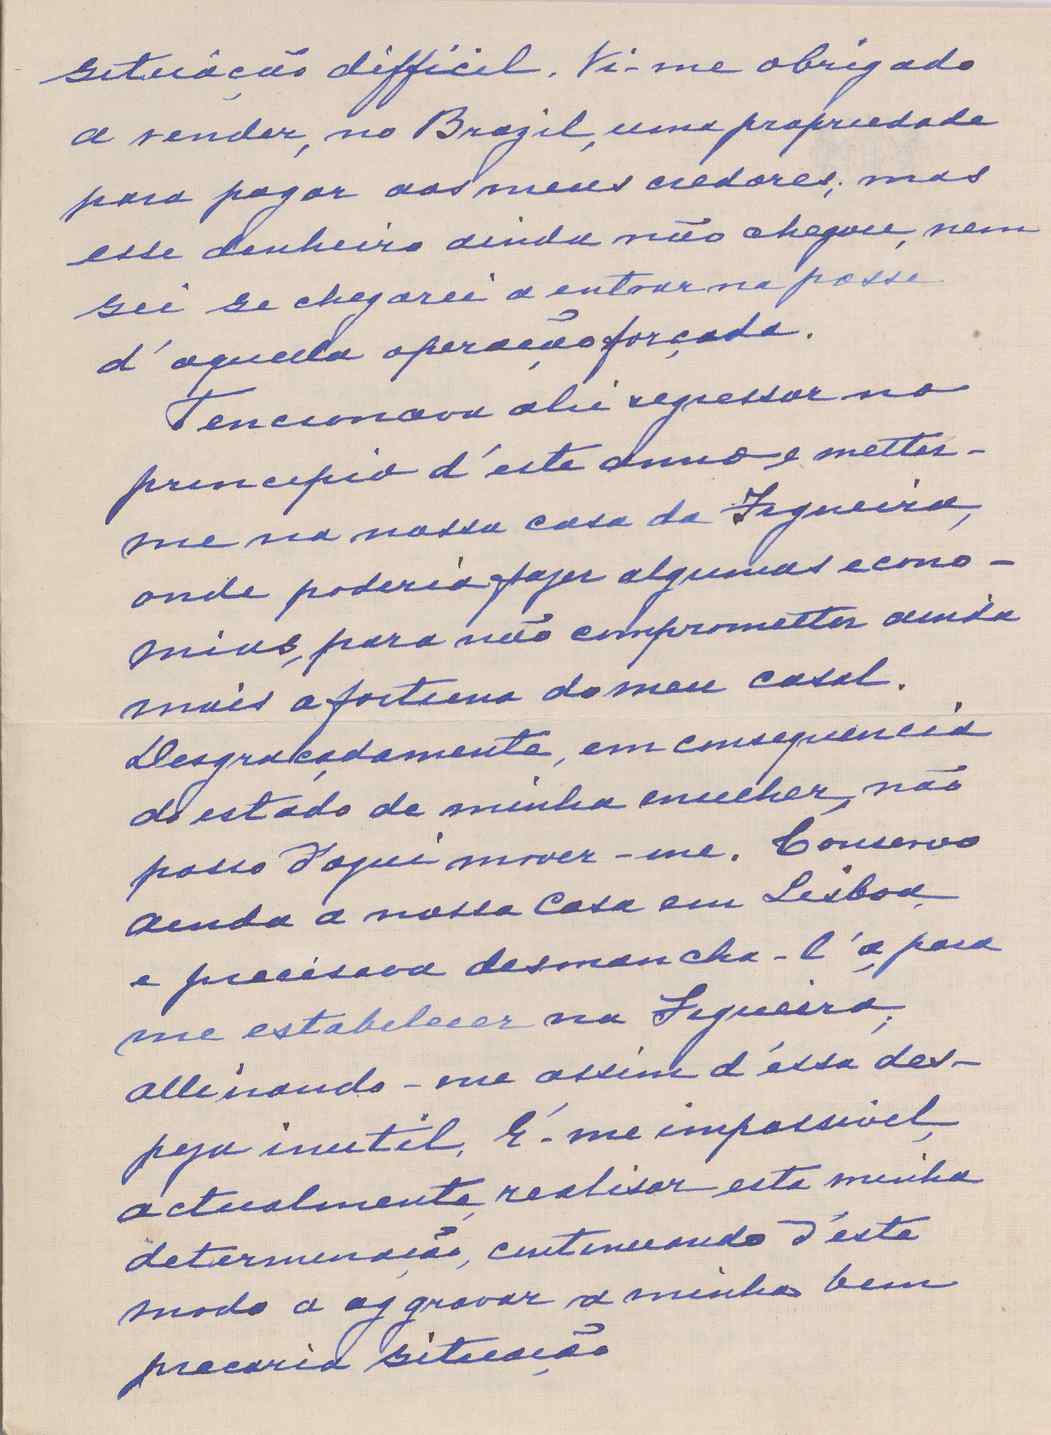 situação difficil. Vi-me obrigado
a vender, no Brazil, uma propriedade
para pagar aos meus credores; mas
esse dinheiro ainda não chegou, nem
sei se chegarei a entrar na posse
d'aquella operação forçada.
Tencionava ahi regressar no
principio d'este anno e metter-
me na nossa casa da Figueira,
onde poderia fazer algumas econo-
mias, para não comprometter ainda
mais a fortuna do meu casal.
Desgraçadamente, em consequencia
do estado de minha mulher, não
posso d'aqui mover-me. Conservo
ainda a nossa casa em Lisboa,
e precisava desmancha-l'a, para
me estabelecer na Figueira;
allivando-me assim d'essa des-
peza inutil. É-me impossivel,
actualmente, realisar esta minha
determinação, continuando d'este
modo a aggravar a minha bem
precaria situação